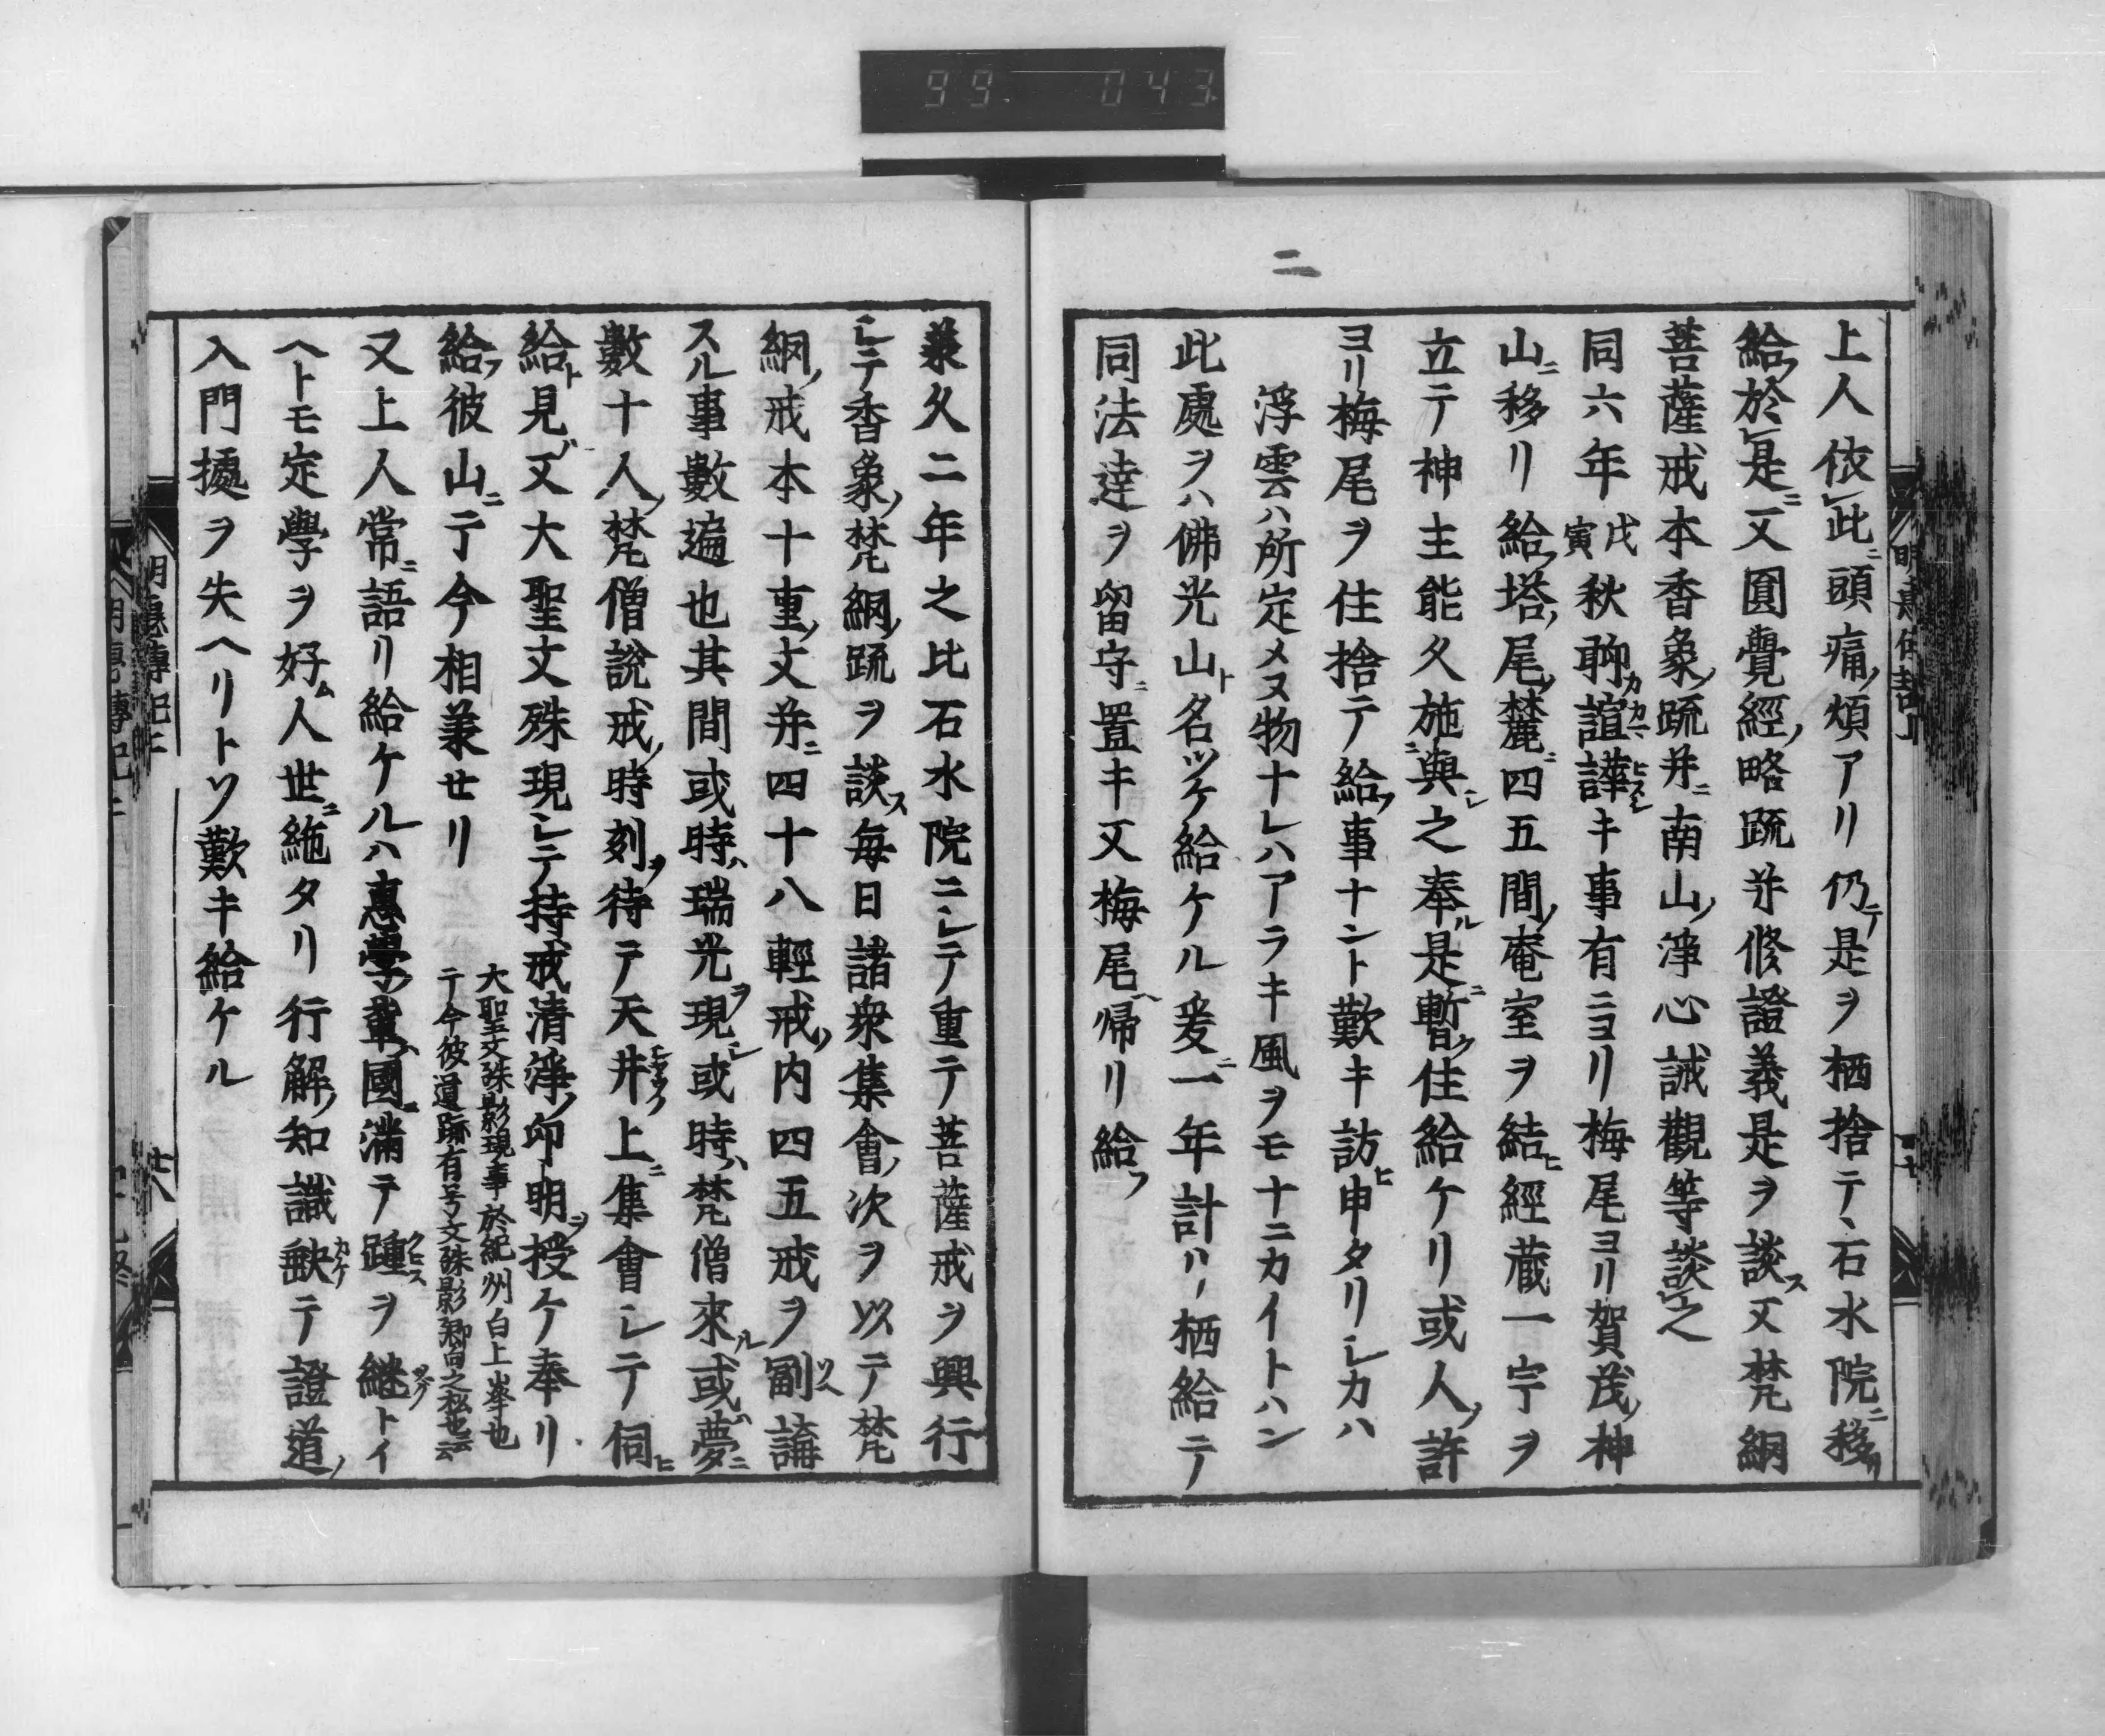 99 043
二
上人依レ此ニ頭痛ノ煩アリ仍テ是ヲ栖捨テヽ石水院ニ移リ
給フ於レ是ニ又圓覺經ノ略疏并修證義是ヲ談ス又梵網
菩薩戒本香象ノ疏并ニ南山ノ淨心誡觀等談レ之
同六年戊寅秋聊カ諠譁キ事有ニヨリ梅尾ヨリ賀茂ノ神
山ニ移リ給フ塔ノ尾ノ麓ニ四五間ノ庵室ヲ結ヒ經藏一宇ヲ
立テ神主能久施ニ與シ之奉ル是ニ暫ク住給ケリ或人ノ許
ヨリ梅尾ヲ住捨テ給フ事ナント歎キ訪ヒ申タリシカハ
浮雲ハ所定メヌ物ナレハアラキ風ヲモナニカイトハン
此處ヲハ佛光山ト名ツケ給ケル爰ニ一年計リ栖給テ
同法達ヲ留守ニ置キ又梅尾ヘ帰リ給フ
兼久二年之比石水院ニシテ重テ菩薩戒ヲ興行
シテ香象ノ梵網ノ疏ヲ談ス毎日諸衆集會ノ次ヲ以テ梵
網ノ戒本十重ノ文并ニ四十八輕戒ノ内四五戒ヲ副誦
スル事數遍也其間或時ハ瑞光ヲ現シ或時ハ梵僧來ル或ハ夢ニ
數十人ノ梵僧說戒ノ時刻ヲ待テ天井ノ上ニ集會シテ伺ヒ
給ト見ユ又大聖文殊現シテ持戒清淨ノ印明ヲ授ケ奉リ
給フ彼山ニテ今相兼せリ
大聖文殊影現事於紀州白上峯也
テ今彼遺跡有号文殊影嚮之松也云云
又上人常ニ語リ給ケルハ惠學ノ輩ハ國ニ滿テ踵ヲ継トイ
ヘトモ定學ヲ好ム人世ニ絁タリ行解ノ知識缺テ證道ノ
入門據ヲ失ヘリトソ歎キ給ケル